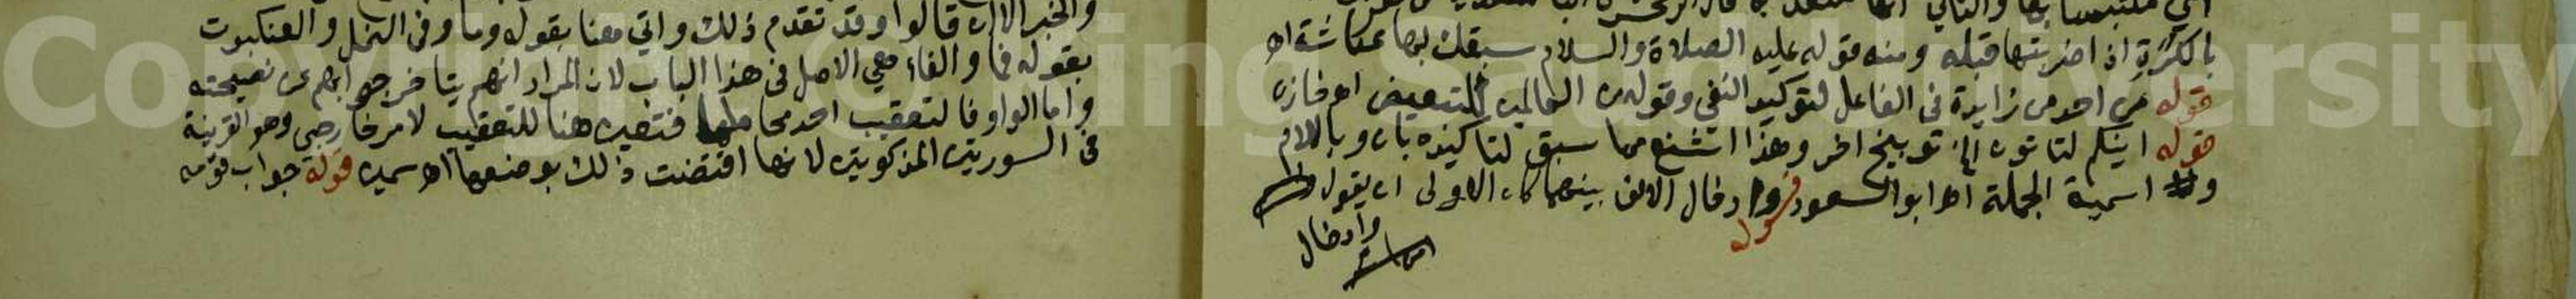 بالكرة اذا ضربتها قبله ومنه قوله عليه الصلاة والسلام سبقك بها عكاشة اهـ
قوله من احد من زايدة فى الفاعل لتوكيد النفى وقوله من العالمين للتبعيض اهـ خازن
قوله اينكم لتاتون الخ توبيخ اخر وهذا اشنع مما سبق لتاكيده بان وباللام
واسمية الجملة اهـ ابوالسعود قوله وادخال الالف بينهما كان الاولى ان يقول
وادخال
والخبر الا ان قالوا وقد تقدم ذلك واتى هنا بقوله وما وفى النمل والعنكبوت
بقوله فما والفاء هى الاصل فى هذا الباب لان المراد انهم يتاخر جوابهم عن نصيحته
واما الواو فالتعقيب احد محاملها فتعين هنا للتعقيب لامر خارجى وهو القرينة
فى السورتين المذكورتين لانها اقتضت ذلك بوضعها اهـ سمين قوله جواب قومه
Copy King Sa ersity